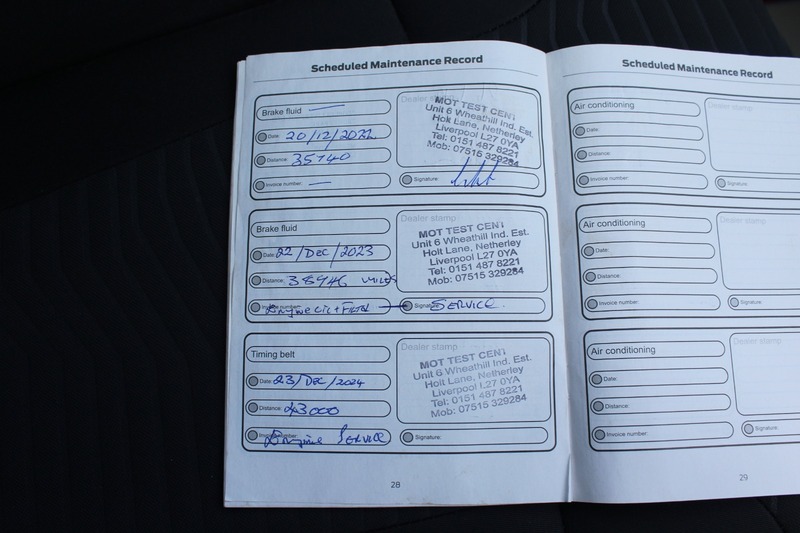 Scheduled Maintenance Record
Brake fluid
Date: 20/12/2022
Distance: 35740
Invoice number: —
Dealer stamp
MOT TEST CENT
Unit 6 Wheathill Ind. Est.
Holt Lane, Netherley
Liverpool L27 0YA
Tel: 0151 487 8221
Mob: 07515 329284
Signature:
Brake fluid
Date: 22/Dec/2023
Distance: 38946 MILES
Invoice number: Engine oil + Filter
Dealer stamp
MOT TEST CENT
Unit 6 Wheathill Ind. Est.
Holt Lane, Netherley
Liverpool L27 0YA
Tel: 0151 487 8221
Mob: 07515 329284
Signature: SERVICE.
Timing belt
Date: 23/Dec/2024
Distance: 43000
Invoice number: Engine SERVICE
Dealer stamp
MOT TEST CENT
Unit 6 Wheathill Ind. Est.
Holt Lane, Netherley
Liverpool L27 0YA
Tel: 0151 487 8221
Mob: 07515 329284
Signature:
28
Scheduled Maintenance Record
Air conditioning
Date:
Distance:
Invoice number:
Dealer stamp
Signature:
Air conditioning
Date:
Distance:
Invoice number:
Dealer stamp
Signature:
Air conditioning
Date:
Distance:
Invoice number:
Dealer stamp
Signature:
29